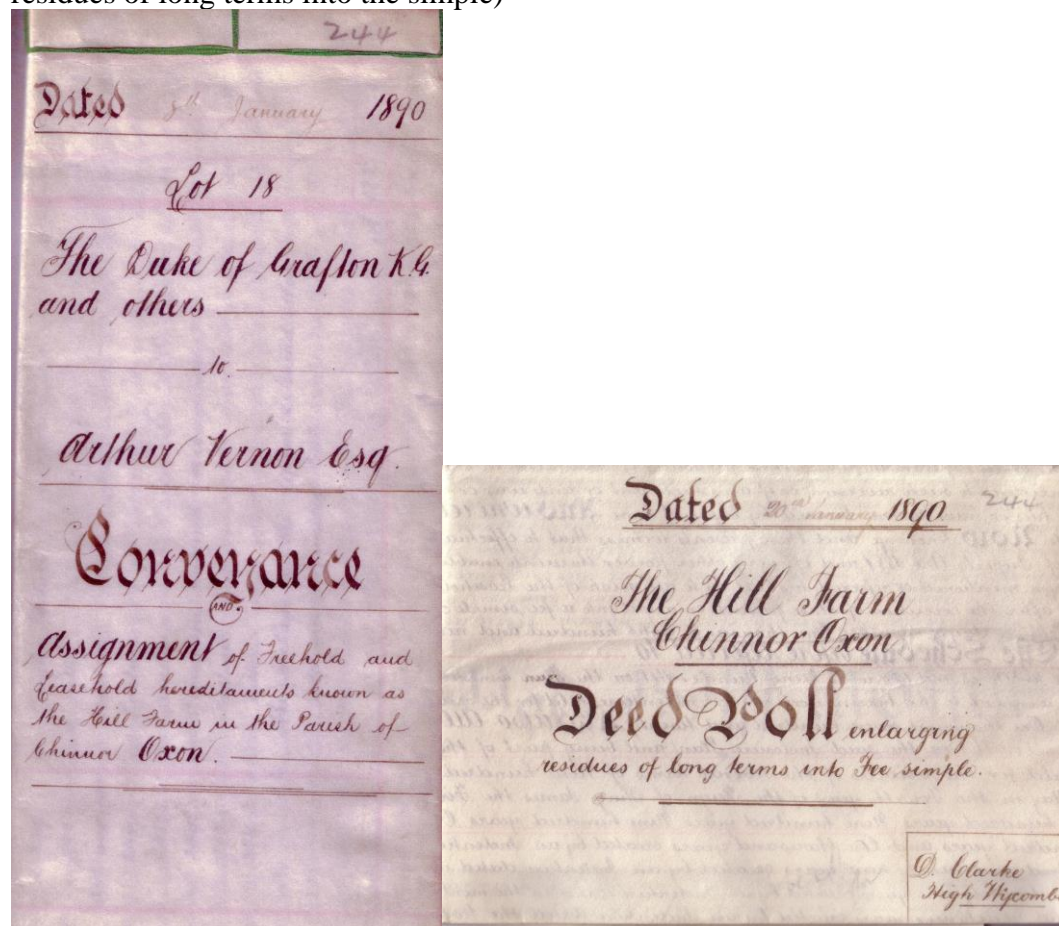 residues of long terms into the simple)
244
Dated 8th January 1890
Lot 18
The Duke of Grafton K.G.
and others
to
Arthur Vernon Esq.
Conveyance
AND
Assignment of Freehold and
Leasehold hereditaments known as
the Hill Farm in the Parish of
Chinnor Oxon.
Dated 20th January 1890
244
The Hill Farm
Chinnor Oxon
Deed Poll enlarging
residues of long terms into Fee simple.
D. Clarke
High Wycombe